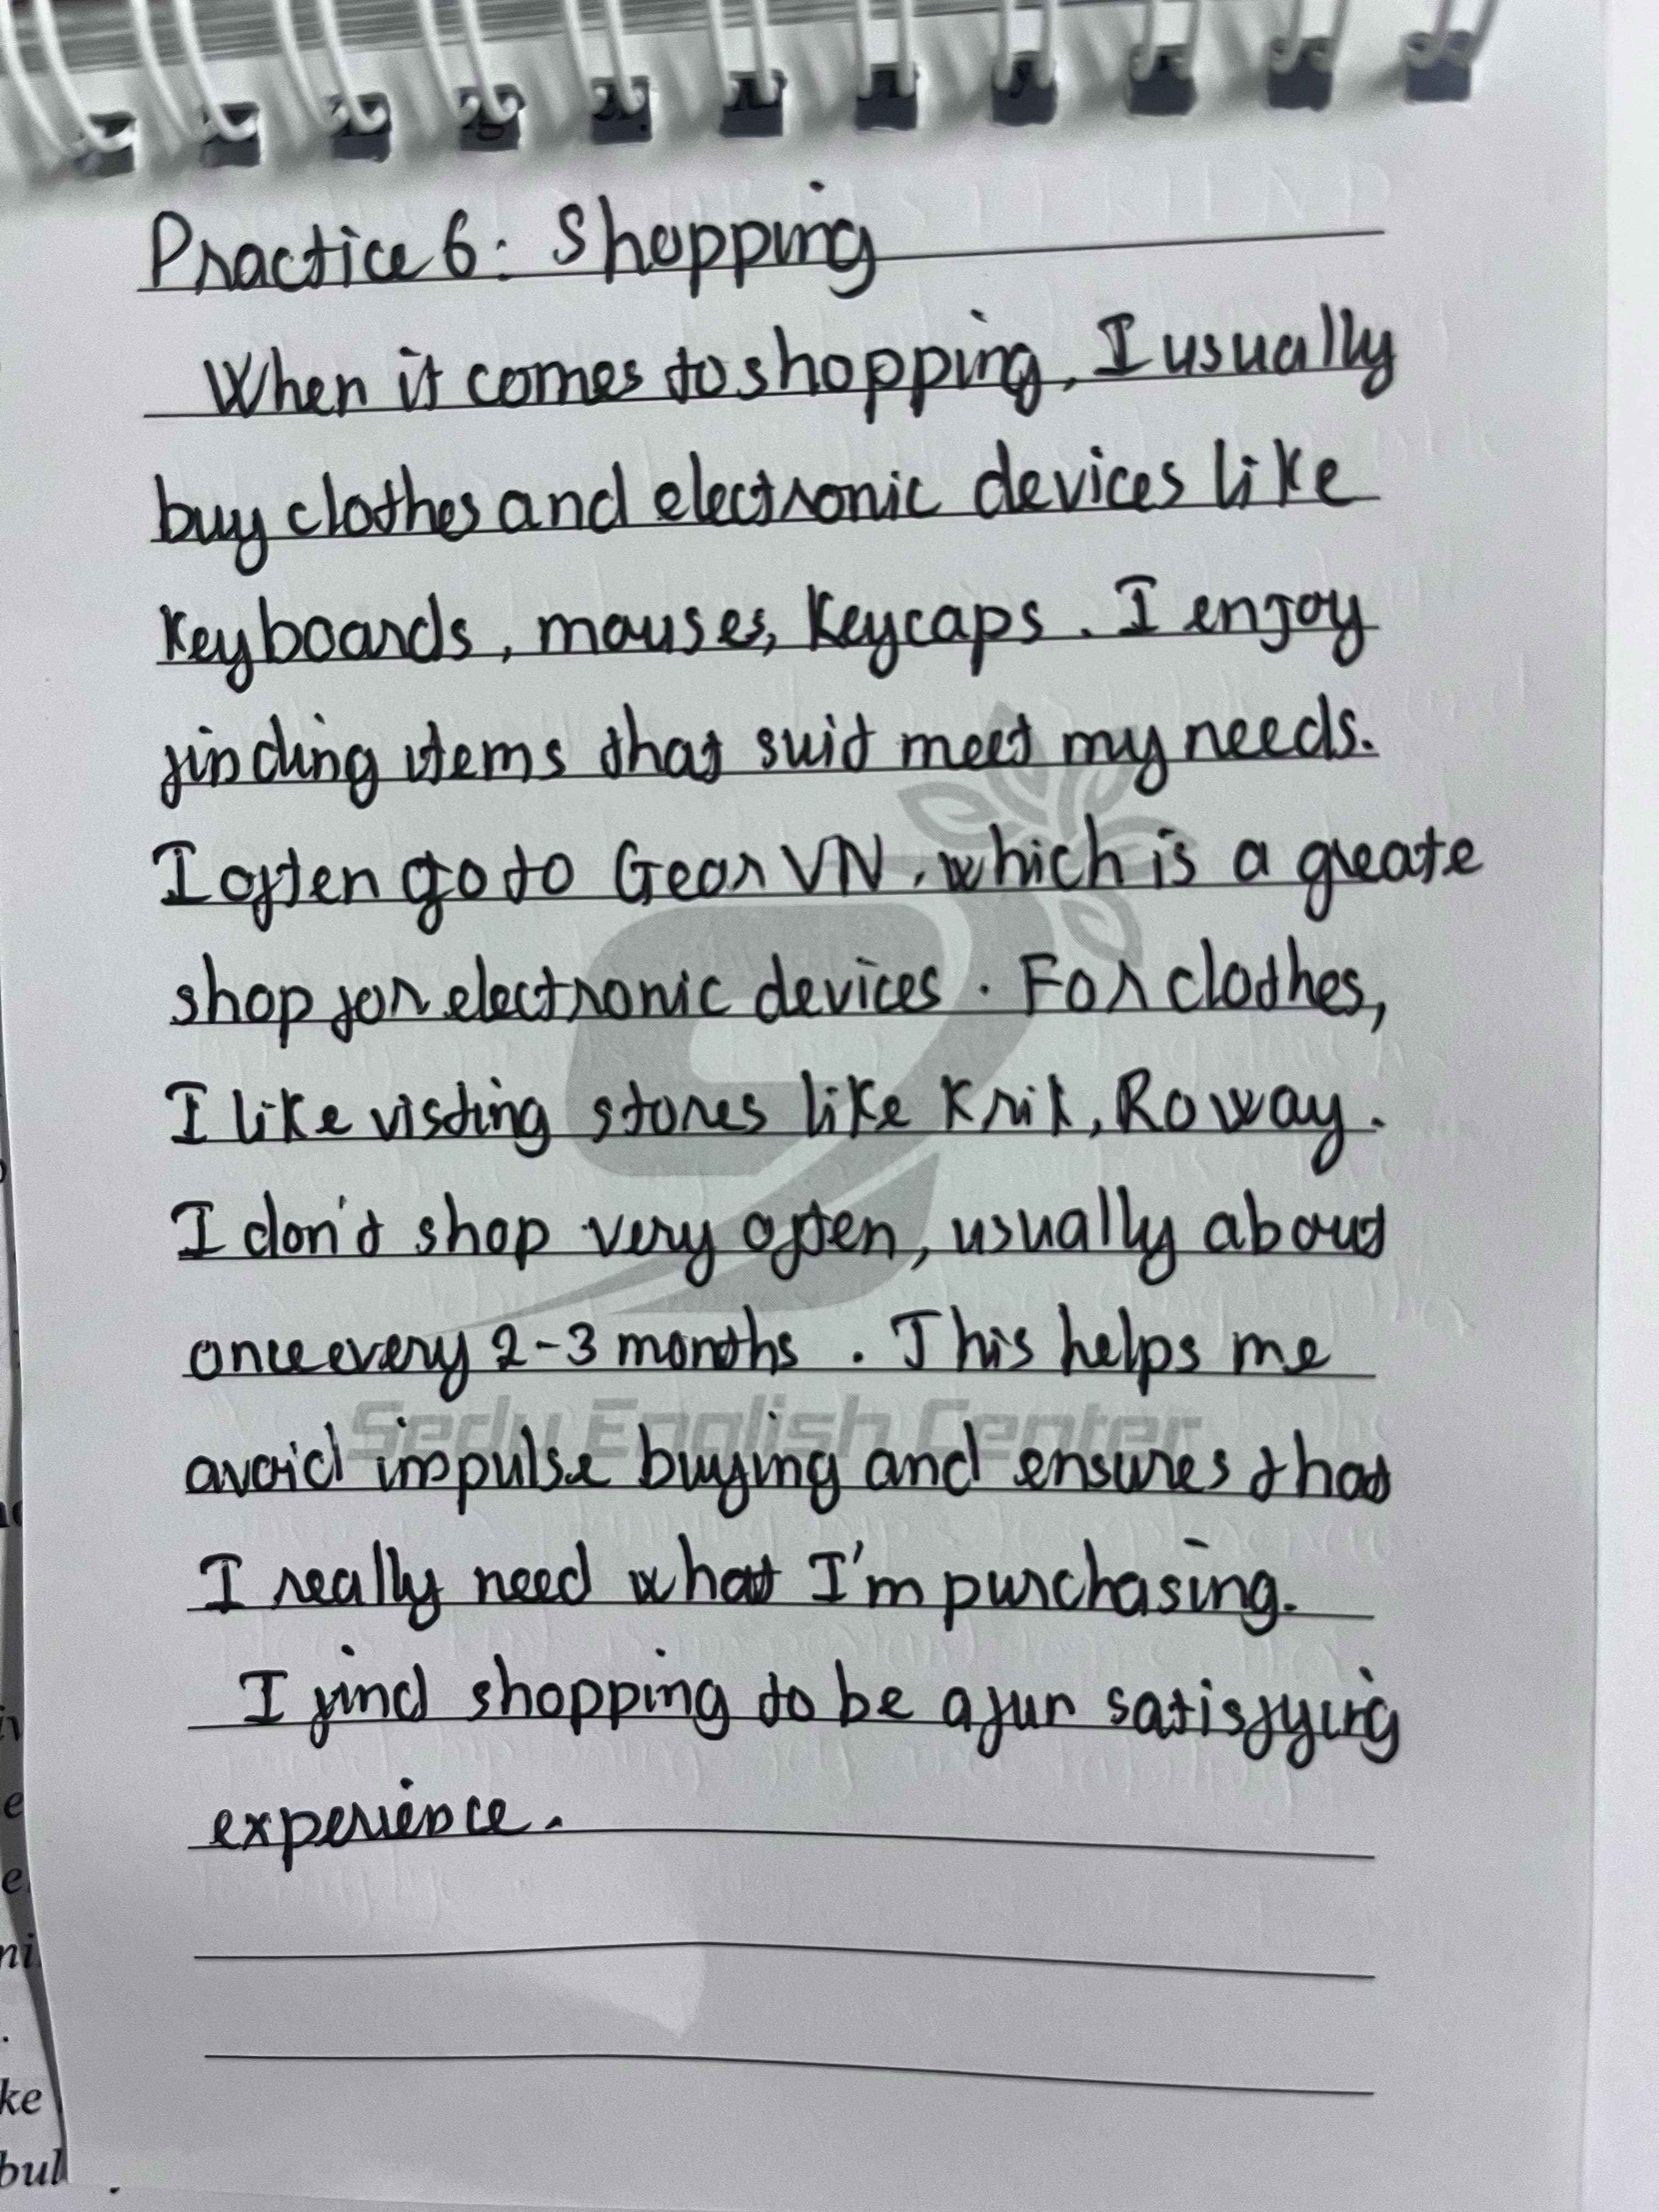 Practice 6: Shopping
When it comes to shopping, I usually
buy clothes and electronic devices like
Keyboards, mouses, Keycaps. I enjoy
finding items that suit meet my needs.
I often go to Gear VN, which is a greate
shop for electronic devices. For clothes,
I like visting stores like Krik, Roway.
I don't shop very often, usually about
once every 2-3 months. This helps me
avoid impulse buying and ensures that
Sedu English Center
I really need what I'm purchasing.
I find shopping to be a fun satisfying
experience.
ke